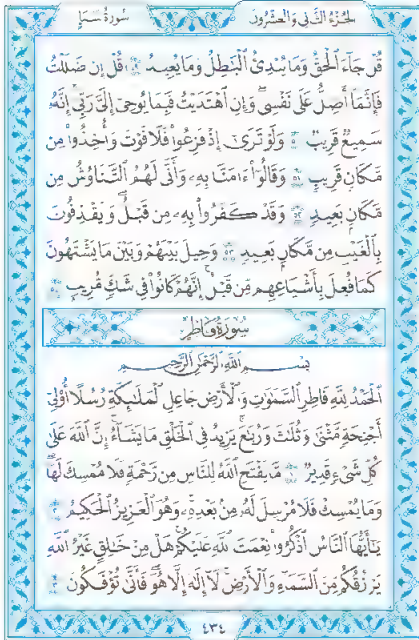 الجزء الثاني والعشرون
سورة سبأ
قُلْ جَاءَ الْحَقُّ وَمَا يُبْدِئُ الْبَاطِلُ وَمَا يُعِيدُ ٤٩ قُلْ إِن ضَلَلْتُ
فَإِنَّمَا أَضِلُّ عَلَىٰ نَفْسِي وَإِنِ اهْتَدَيْتُ فَبِمَا يُوحِي إِلَيَّ رَبِّي إِنَّهُ
سَمِيعٌ قَرِيبٌ ٥٠ وَلَوْ تَرَىٰ إِذْ فَزِعُوا فَلَا فَوْتَ وَأُخِذُوا مِن
مَّكَانٍ قَرِيبٍ ٥١ وَقَالُوا ءَامَنَّا بِهِ وَأَنَّىٰ لَهُمُ التَّنَاوُشُ مِن
مَّكَانٍ بَعِيدٍ ٥٢ وَقَدْ كَفَرُوا بِهِ مِن قَبْلُ وَيَقْذِفُونَ
بِالْغَيْبِ مِن مَّكَانٍ بَعِيدٍ ٥٣ وَحِيلَ بَيْنَهُمْ وَبَيْنَ مَا يَشْتَهُونَ
كَمَا فُعِلَ بِأَشْيَاعِهِم مِّن قَبْلُ إِنَّهُمْ كَانُوا فِي شَكٍّ مُّرِيبٍ ٥٤
سورة فاطر
بِسْمِ اللَّهِ الرَّحْمَٰنِ الرَّحِيمِ
الْحَمْدُ لِلَّهِ فَاطِرِ السَّمَٰوَٰتِ وَالْأَرْضِ جَاعِلِ الْمَلَٰئِكَةِ رُسُلًا أُولِي
أَجْنِحَةٍ مَّثْنَىٰ وَثُلَٰثَ وَرُبَٰعَ يَزِيدُ فِي الْخَلْقِ مَا يَشَاءُ إِنَّ اللَّهَ عَلَىٰ
كُلِّ شَيْءٍ قَدِيرٌ ١ مَّا يَفْتَحِ اللَّهُ لِلنَّاسِ مِن رَّحْمَةٍ فَلَا مُمْسِكَ لَهَا
وَمَا يُمْسِكْ فَلَا مُرْسِلَ لَهُ مِن بَعْدِهِ وَهُوَ الْعَزِيزُ الْحَكِيمُ ٢
يَٰأَيُّهَا النَّاسُ اذْكُرُوا نِعْمَتَ اللَّهِ عَلَيْكُمْ هَلْ مِنْ خَٰلِقٍ غَيْرُ اللَّهِ
يَرْزُقُكُم مِّنَ السَّمَاءِ وَالْأَرْضِ لَا إِلَٰهَ إِلَّا هُوَ فَأَنَّىٰ تُؤْفَكُونَ ٣
٤٣٤